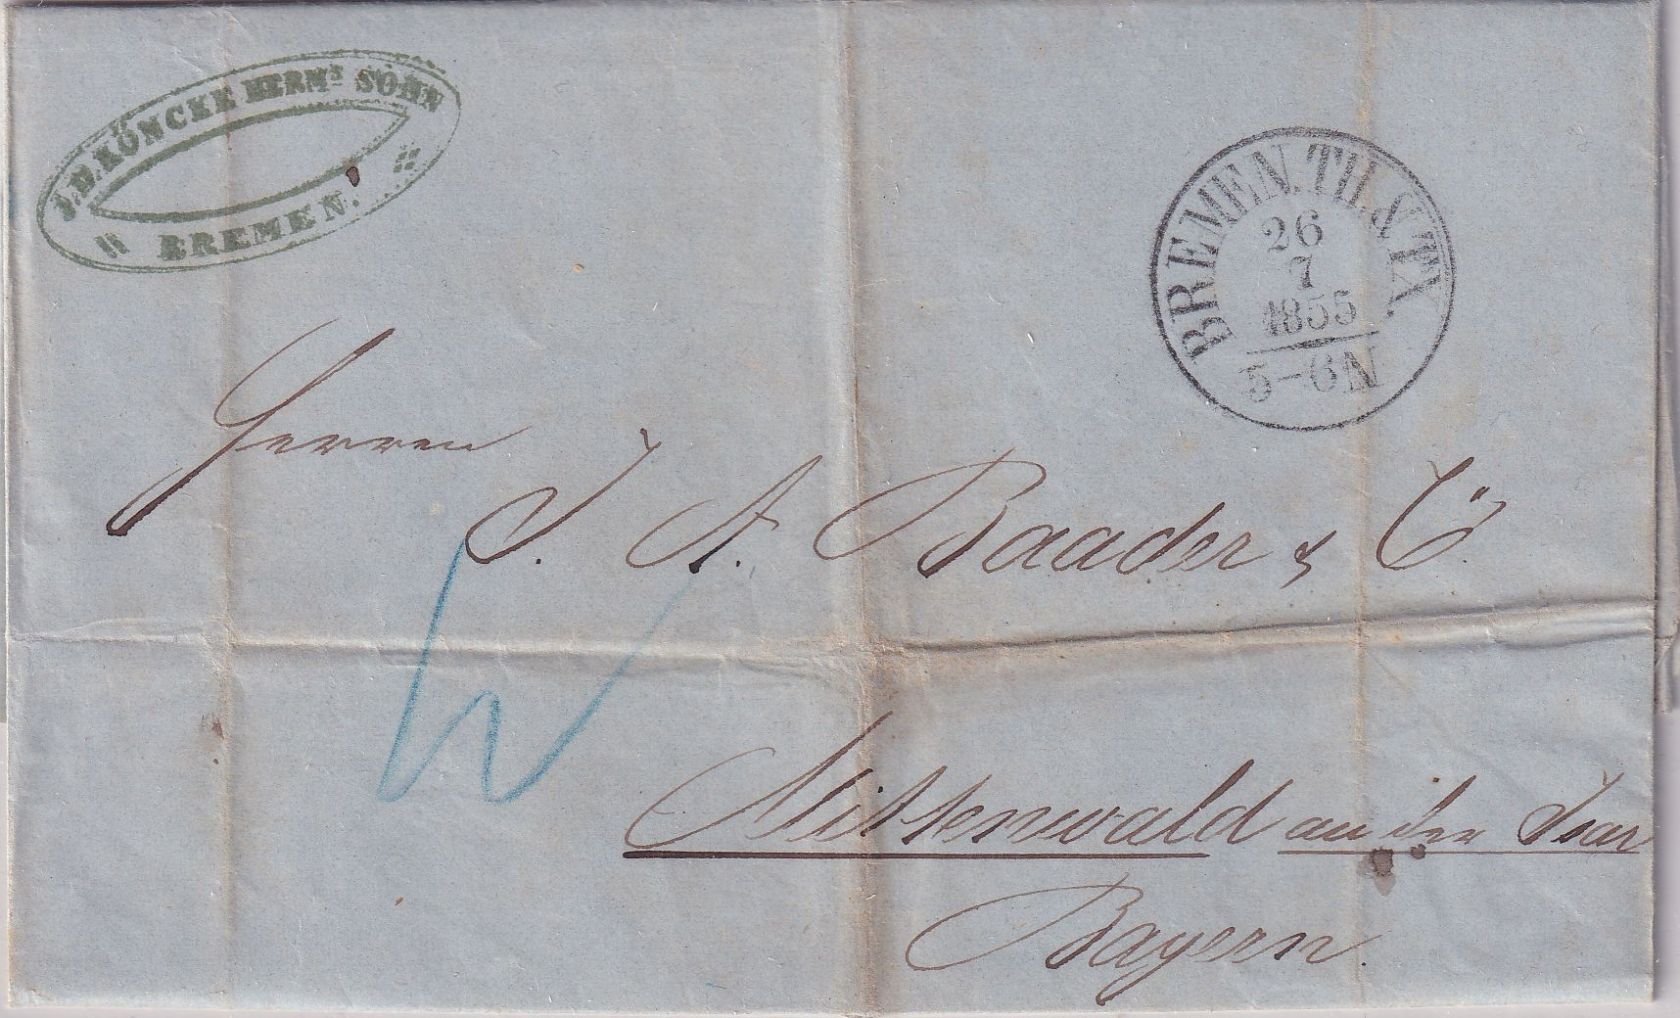 J.H. KÖNCKE HERMS SOHN
BREMEN.
BREMEN. TH. & TX
26
7
1855
5-6N
Herren
J. A. Baader & Co.
Mittenwald an der Isar
Bayern.